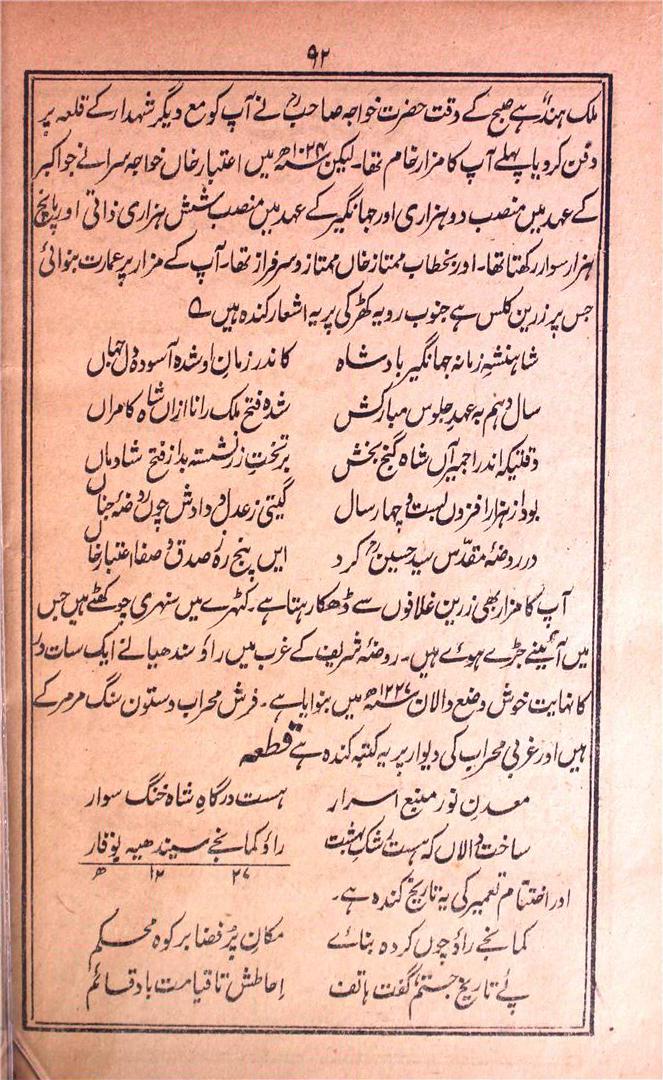 ۹۲
ملک ہند ہے صبح کے وقت حضرت خواجہ صاحبؒ نے آپ کو مع دیگر شہدار کے قلعہ پر
دفن کر دیا پہلے آپ کا مزار خام تھا۔ لیکن ۱۰۲۴ھ میں اعتبار خاں خواجہ سرانے جو اکبر
کے عہد میں منصب دو ہزاری اور جہانگیر کے عہد میں منصب شش ہزاری ذاتی اور پانچ
ہزار سوار رکھتا تھا۔ اور بخطاب ممتاز خاں ممتاز و سرفراز تھا۔ آپ کے مزار پر عمارت بنوائی
جس پر زرین کلس ہے جنوب رویہ کھڑکی پر یہ اشعار کندہ ہیں ے
شاہنشہِ زمانہ جہانگیر بادشاہ کاندر زمانِ او شدہ آسودہ دل جہاں
سال دہم بہ عہدِ جلوس مبارکش شدہ فتح ملک رانا ازاں شاہ کامراں
وقتیکہ اندر اجمیر آں شاہ گنج بخش بر تختِ زر نشستہ بد از فتح شادماں
بود از ہزار افزوں بست و چہار سال گیتی ز عدل و دادش چوں روضۂ جناں
در روضۂ مقدس سید حسینؒ کرد ایں پنجرہ ز صدق و صفا اعتبار خاں
آپ کا مزار بھی زرین غلافوں سے ڈھکا رہتا ہے۔ کٹہرے میں سنہری چوکھٹے ہیں جس
میں آئینے جڑے ہوئے ہیں۔ روضۂ شریف کے غرب میں راؤ سندھیا نے ایک سات در
کا نہایت خوش وضع دالان ۱۲۲۷ھ میں بنوایا ہے۔ فرش محراب و ستون سنگ مرمر کے
ہیں اور غربی محراب کی دیوار پر یہ کتبہ کندہ ہے قطعہ
معدنِ نور منبع اسرار ہست درگاہِ شاہ خنگ سوار
ساخت دالاں کہ ہست رشکِ بہشت راؤ کمانجے سیندھیہ بوقار
۲۷ ۱۲ ھ
اور اختتام تعمیر کی یہ تاریخ کندہ ہے۔
کمانجے راؤ چوں کردہ بنائے مکانِ پُر فضا بر کوہ محکم
پئے تاریخ جستم گفت ہاتف احاطش تا قیامت باد قائم